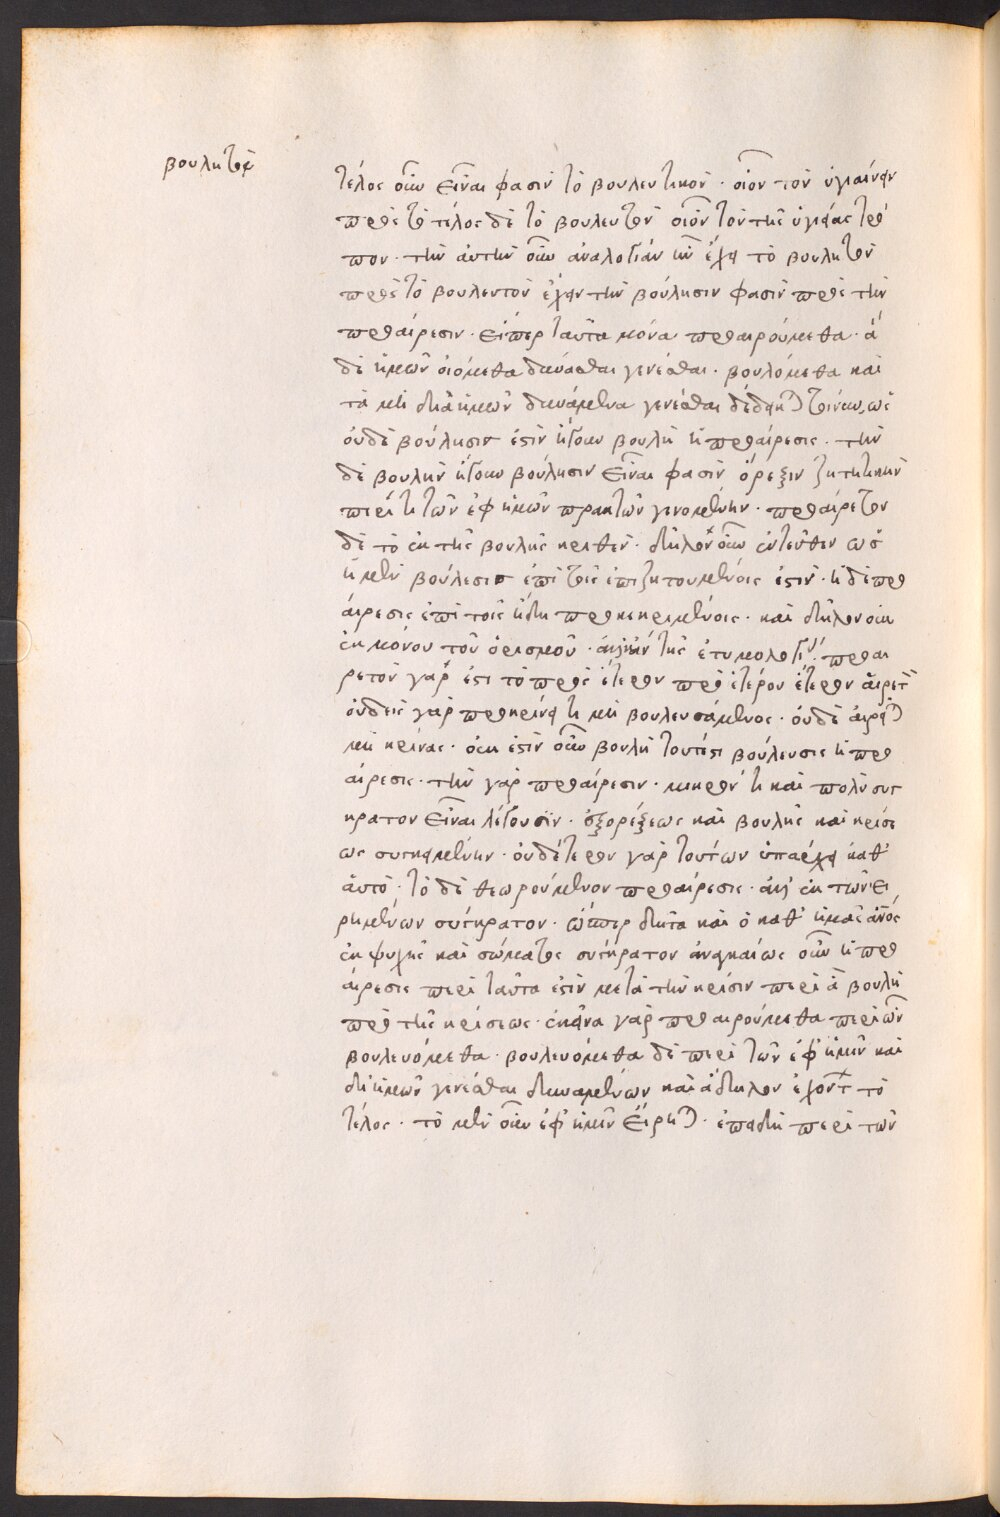 βουλητὸν
τέλος οὖν εἶναι φασὶν τὸ βουλευτικόν· οἷον τὸν ὑγιαίνειν
πρὸς τὸ τέλος δὲ τὸ βουλευτὸν οἷον τὸν τῆς ὑγιείας τρό
πον· τὴν ἀυτὴν οὖν ἀναλογίαν ἣν ἔχει τὸ βουλητὸν
πρὸς τὸ βουλευτὸν ἔχειν τὴν βούλησιν φασὶν πρὸς τὴν
προαίρεσιν. εἴπερ ταῦτα μόνα προαιρούμεθα· ἃ
δι ἡμῶν οἰόμεθα δύνασθαι γενέσθαι. βουλόμεθα καὶ
τὰ μὴ δι ἡμῶν δυνάμενα γενέσθαι δέδεικται τοίνυν, ὡς
ὀυδὲ βούλησις ἐστὶν ἤγουν βουλὴ ἡ προαίρεσις. τὴν
δὲ βουλὴν ἤγουν βούλησιν εἶναι φασὶν ὄρεξιν ζητητικὴν
περί τι τῶν ἐφ ἡμῶν πρακτῶν γενομένην. προαίρετον
δὲ τὸ ἐκ τῆς βουλῆς κριθέν. δῆλον οὖν ἐντεῦθεν ὡς
ἡ μὲν βούλεσις ἐπὶ τοῖς ἐπιζητουμένοις ἐστίν. ἡ δὲ προ
άιρεσις ἐπὶ τοῖς ἤδη προκεκριμένοις. καὶ δῆλον οὐκ
ἐκ μόνου τοῦ ὁρισμοῦ· ἀλλὰ κἀκ τῆς ἐτυμολογίας. προαι
ρετὸν γάρ ἐστι τὸ πρὸς ἕτερον πρὸ ἑτέρου ἕτερον αἱρετόν
ὀυδεὶς γὰρ προκρίνει τι μὴ βουλευσάμενος. ὀυδὲ ἁιρεῖται
μὴ κρίνας. ὀυκ ἐστὶν οὖν βουλὴ τουτέστι βούλευσις ἡ προ
αίρεσις. τὴν γὰρ προαίρεσιν. μικρόν τι καὶ πολὺ συγ
κρατον εἶναι λέγουσιν. ἐξ ορέξεως καὶ βουλῆς καὶ κρίσε
ως συγκειμένην. ὀυδέτερον γὰρ τούτων ὑπάρχει καθ'
ἁυτό. τὸ δὲ θεωρούμενον προαίρεσις. ἀλλ' ἐκ τῶν ει
ρημένων σύγκρατον. ὥσπερ δῆτα καὶ ὁ καθ' ἡμᾶς ἄνος
ἐκ ψυχῆς καὶ σώματος σύγκρατον ἀναγκαίως οὖν ἡ προ
άιρεσις περὶ ταῦτα ἐστὶν μετὰ τὴν κρίσιν περὶ ἃ βουλὴ
πρὸ τῆς κρίσεως. ἐκεῖνα γὰρ προαιρούμεθα περὶ ὧν
βουλευόμεθα. βουλευόμεθα δὲ περὶ τῶν ἐφ' ἡμῖν καὶ
δι ἡμῶν γενέσθαι δυναμένων καὶ ἄδηλον ἐχόντων τὸ
τέλος. τὸ μὲν οὖν ἐφ' ἡμῖν ἔιρηται. ἐπειδὴ περὶ τῶν